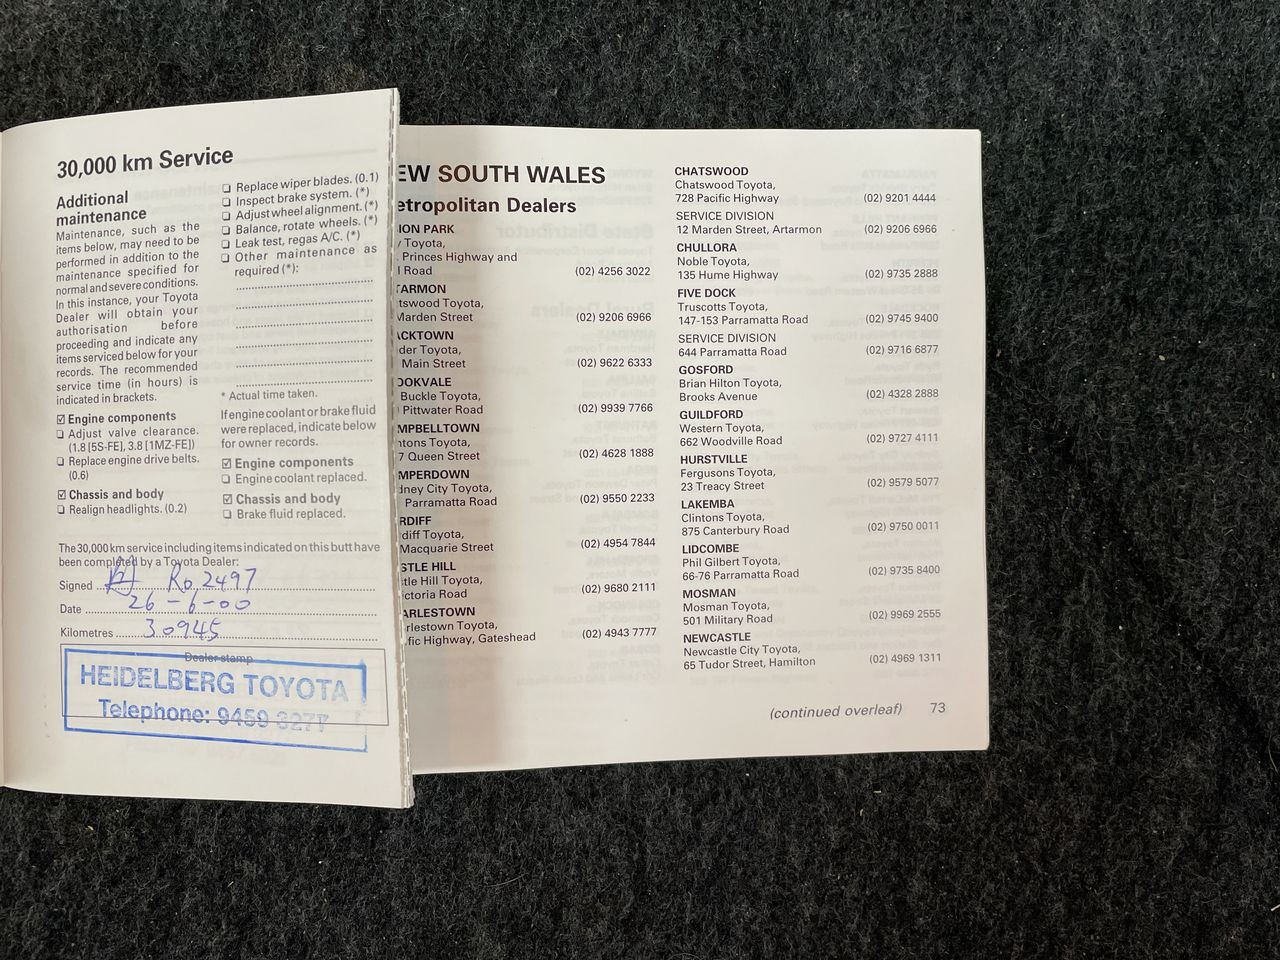 30,000 km Service
Additional
maintenance
Maintenance, such as the
items below, may need to be
performed in addition to the
maintenance specified for
normal and severe conditions.
In this instance, your Toyota
Dealer will obtain your
authorisation before
proceeding and indicate any
items serviced below for your
records. The recommended
service time (in hours) is
indicated in brackets.
☑ Engine components
❏ Adjust valve clearance.
(1.8 [5S-FE], 3.8 [1MZ-FE])
❏ Replace engine drive belts.
(0.6)
☑ Chassis and body
❏ Realign headlights. (0.2)
❏ Replace wiper blades. (0.1)
❏ Inspect brake system. (*)
❏ Adjust wheel alignment. (*)
❏ Balance, rotate wheels. (*)
❏ Leak test, regas A/C. (*)
❏ Other maintenance as
required (*):
* Actual time taken.
If engine coolant or brake fluid
were replaced, indicate below
for owner records.
☑ Engine components
❏ Engine coolant replaced.
☑ Chassis and body
❏ Brake fluid replaced.
The 30,000 km service including items indicated on this butt have
been completed by a Toyota Dealer:
Signed Ro 2497
Date 26-6-00
Kilometres 30945
Dealer stamp
HEIDELBERG TOYOTA
Telephone: 9459 3277
EW SOUTH WALES
etropolitan Dealers
ION PARK
Toyota,
Princes Highway and
Road (02) 4256 3022
TARMON
tswood Toyota,
Marden Street (02) 9206 6966
ACKTOWN
der Toyota,
Main Street (02) 9622 6333
OOKVALE
Buckle Toyota,
Pittwater Road (02) 9939 7766
MPBELLTOWN
ntons Toyota,
7 Queen Street (02) 4628 1888
MPERDOWN
dney City Toyota,
Parramatta Road (02) 9550 2233
RDIFF
diff Toyota,
Macquarie Street (02) 4954 7844
STLE HILL
tle Hill Toyota,
ctoria Road (02) 9680 2111
ARLESTOWN
rlestown Toyota,
fic Highway, Gateshead (02) 4943 7777
CHATSWOOD
Chatswood Toyota,
728 Pacific Highway (02) 9201 4444
SERVICE DIVISION
12 Marden Street, Artarmon (02) 9206 6966
CHULLORA
Noble Toyota,
135 Hume Highway (02) 9735 2888
FIVE DOCK
Truscotts Toyota,
147-153 Parramatta Road (02) 9745 9400
SERVICE DIVISION
644 Parramatta Road (02) 9716 6877
GOSFORD
Brian Hilton Toyota,
Brooks Avenue (02) 4328 2888
GUILDFORD
Western Toyota,
662 Woodville Road (02) 9727 4111
HURSTVILLE
Fergusons Toyota,
23 Treacy Street (02) 9579 5077
LAKEMBA
Clintons Toyota,
875 Canterbury Road (02) 9750 0011
LIDCOMBE
Phil Gilbert Toyota,
66-76 Parramatta Road (02) 9735 8400
MOSMAN
Mosman Toyota,
501 Military Road (02) 9969 2555
NEWCASTLE
Newcastle City Toyota,
65 Tudor Street, Hamilton (02) 4969 1311
(continued overleaf) 73